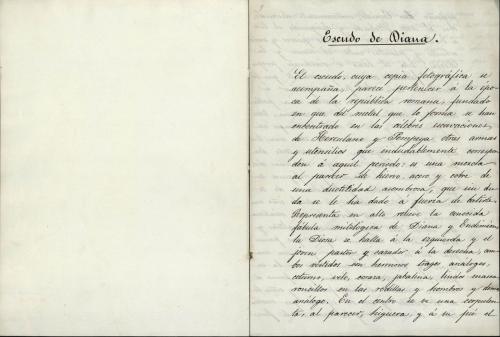 Escudo de Diana.
El escudo, cuya copia fotográfica se
acompaña, parece pertenecer á la épo-
ca de la república romana, fundado
en que del metal que lo forma se han
encontrado en las célebres escavaciones,
de Herculano y Pompeya otras armas
y utensilios que indudablemente correspon
den á aquel periodo: es una mezcla
al parecer de hierro, acero y cobre de
una ductilidad asombrosa, que sin du-
da se le ha dado á fuerza de batirla.
Representa en alto relieve la conocida
fábula mitologica de Diana y Endimion
La Diosa se halla á la izquierda y el
joven pastor y cazador á la derecha, am-
bos vestidos con hermosos trages análogos,
coturno, velo, coraza, lindos masca-
roncillos en las rodillas y hombros y demas
análogo. En el centro se ve una corpulen-
ta, al parecer, higuera, y á su pié el